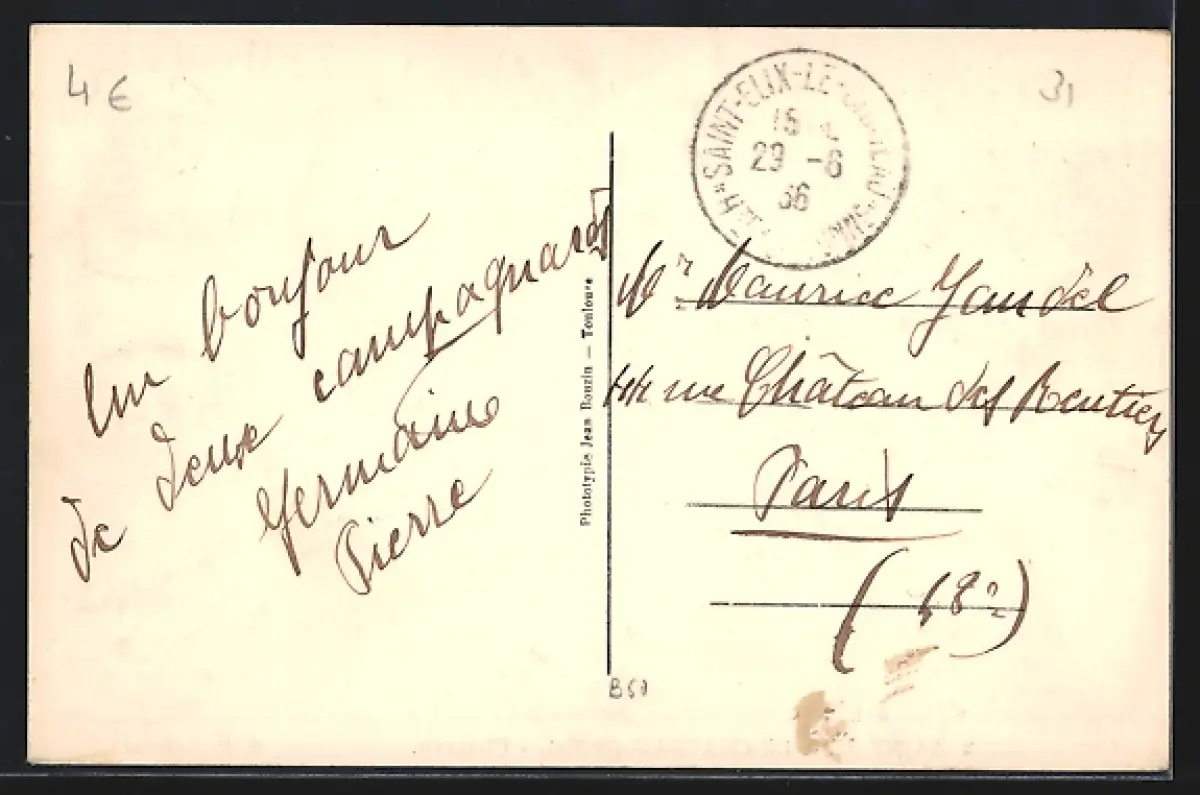 4 €
31
SAINT-ELIX-LE-CHATEAU
15
29 -6
36
un bonjour
de deux campagnards
Germaine
Pierre
Phototypie Jean Bouzin — Toulouse
Mr. Maurice Jaudel
44 rue Château des Rentiers
Paris
(18e)
B57